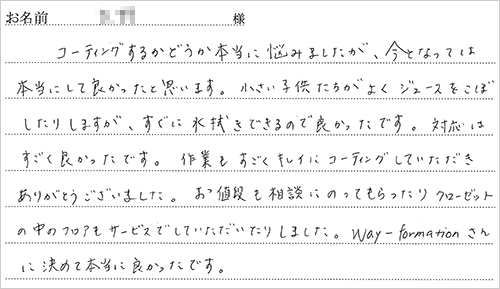 お名前 様
コーティングするかどうか本当に悩みましたが、今となっては
本当にして良かったと思います。小さい子供たちがよくジュースをこぼ
したりしますが、すぐに水拭きできるので良かったです。対応は
すごく良かったです。作業もすごくキレイにコーティングしていただき
ありがとうございました。お値段も相談にのってもらったりクローゼット
の中のフロアもサービスでしていただいたりしました。way-formationさん
に決めて本当に良かったです。